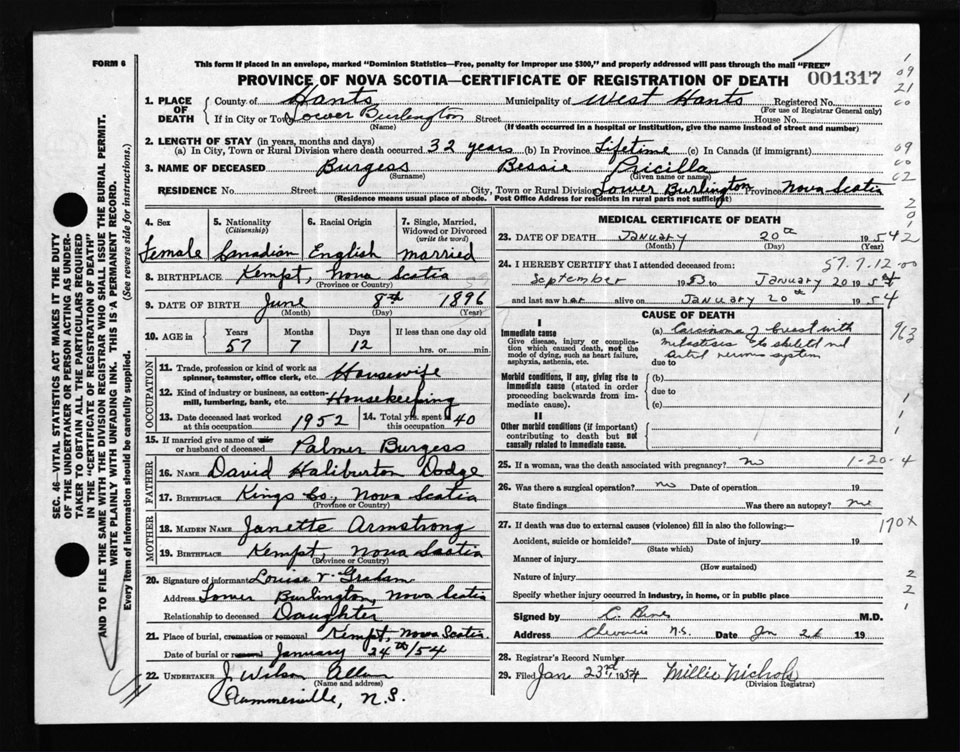 FORM 6
This form if placed in an envelope, marked "Dominion Statistics—Free, penalty for improper use $300," and properly addressed will pass through the mail "FREE"
PROVINCE OF NOVA SCOTIA—CERTIFICATE OF REGISTRATION OF DEATH 001317
1. PLACE OF DEATH County of Hants Municipality of West Hants Registered No.
(For use of Registrar General only)
If in City or Town Lower Burlington Street House No.
(Name) (If death occurred in a hospital or institution, give the name instead of street and number)
2. LENGTH OF STAY (in years, months and days)
(a) In City, Town or Rural Division where death occurred 32 years (b) In Province Lifetime (c) In Canada (if immigrant)
3. NAME OF DECEASED Burgess Bessie Pricilla
(Surname) (Given name or names)
RESIDENCE No. Street City, Town or Rural Division Lower Burlington Province Nova Scotia
(Residence means usual place of abode. Post Office Address for residents in rural parts not sufficient)
4. Sex 5. Nationality (Citizenship) 6. Racial Origin 7. Single, Married, Widowed or Divorced (write the word)
Female Canadian English married
8. BIRTHPLACE Kempt, Nova Scotia
(Province or Country)
9. DATE OF BIRTH June 8th 1896
(Month) (Day) (Year)
10. AGE in Years Months Days If less than one day old
57 7 12 hrs. or min.
OCCUPATION
11. Trade, profession or kind of work as spinner, teamster, office clerk, etc. Housewife
12. Kind of industry or business, as cotton-mill, lumbering, bank, etc. Housekeeping
13. Date deceased last worked at this occupation 1952 14. Total yrs. spent in this occupation 40
15. If married give name of wife or husband of deceased Palmer Burgess
FATHER
16. NAME David Haliburton Dodge
17. BIRTHPLACE Kings Co., Nova Scotia
(Province or Country)
MOTHER
18. MAIDEN NAME Janette Armstrong
19. BIRTHPLACE Kempt, Nova Scotia
(Province or Country)
20. Signature of informant Louise V. Graham
Address Lower Burlington, Nova Scotia
Relationship to deceased Daughter
21. Place of burial, cremation or removal Kempt, Nova Scotia.
Date of burial or removal January 24th/54
22. UNDERTAKER J. Wilson Allen
(Name and address)
Summerville, N.S.
MEDICAL CERTIFICATE OF DEATH
23. DATE OF DEATH January 20th 1954
(Month) (Day) (Year)
57.7.12.00
24. I HEREBY CERTIFY that I attended deceased from:
September 1953 to January 20 1954
and last saw her alive on January 20th 1954
CAUSE OF DEATH
I
Immediate cause
Give disease, injury or complication which caused death, not the mode of dying, such as heart failure, asphyxia, asthenia, etc.
(a) Carcinoma of breast with
to skeletal
nervous system
due to
Morbid conditions, if any, giving rise to immediate cause (stated in order proceeding backwards from immediate cause).
(b)
due to
(c)
II
Other morbid conditions (if important) contributing to death but not causally related to immediate cause.
25. If a woman, was the death associated with pregnancy? no 1-20-4
26. Was there a surgical operation? no Date of operation 19
State findings Was there an autopsy? no
27. If death was due to external causes (violence) fill in also the following:—
Accident, suicide or homicide? Date of injury 19
(State which)
Manner of injury
(How sustained)
Nature of injury
Specify whether injury occurred in industry, in home, or in public place
Signed by M.D.
Address N.S. Date Jan 19
28. Registrar's Record Number
29. Filed Jan 23rd, 1954 Millie Nichols
(Division Registrar)
SEC. 46—VITAL STATISTICS ACT MAKES IT THE DUTY
OF THE UNDERTAKER OR PERSON ACTING AS UNDER-
TAKER TO OBTAIN ALL THE PARTICULARS REQUIRED
IN THE "CERTIFICATE OF REGISTRATION OF DEATH"
AND TO FILE THE SAME WITH THE DIVISION REGISTRAR WHO SHALL ISSUE THE BURIAL PERMIT.
WRITE PLAINLY WITH UNFADING INK. THIS IS A PERMANENT RECORD.
Every item of information should be carefully supplied. (See reverse side for instructions.)
1
09
21
00
09
00
02
2
0
1
2
963
1
1
1
170X
2
2
1